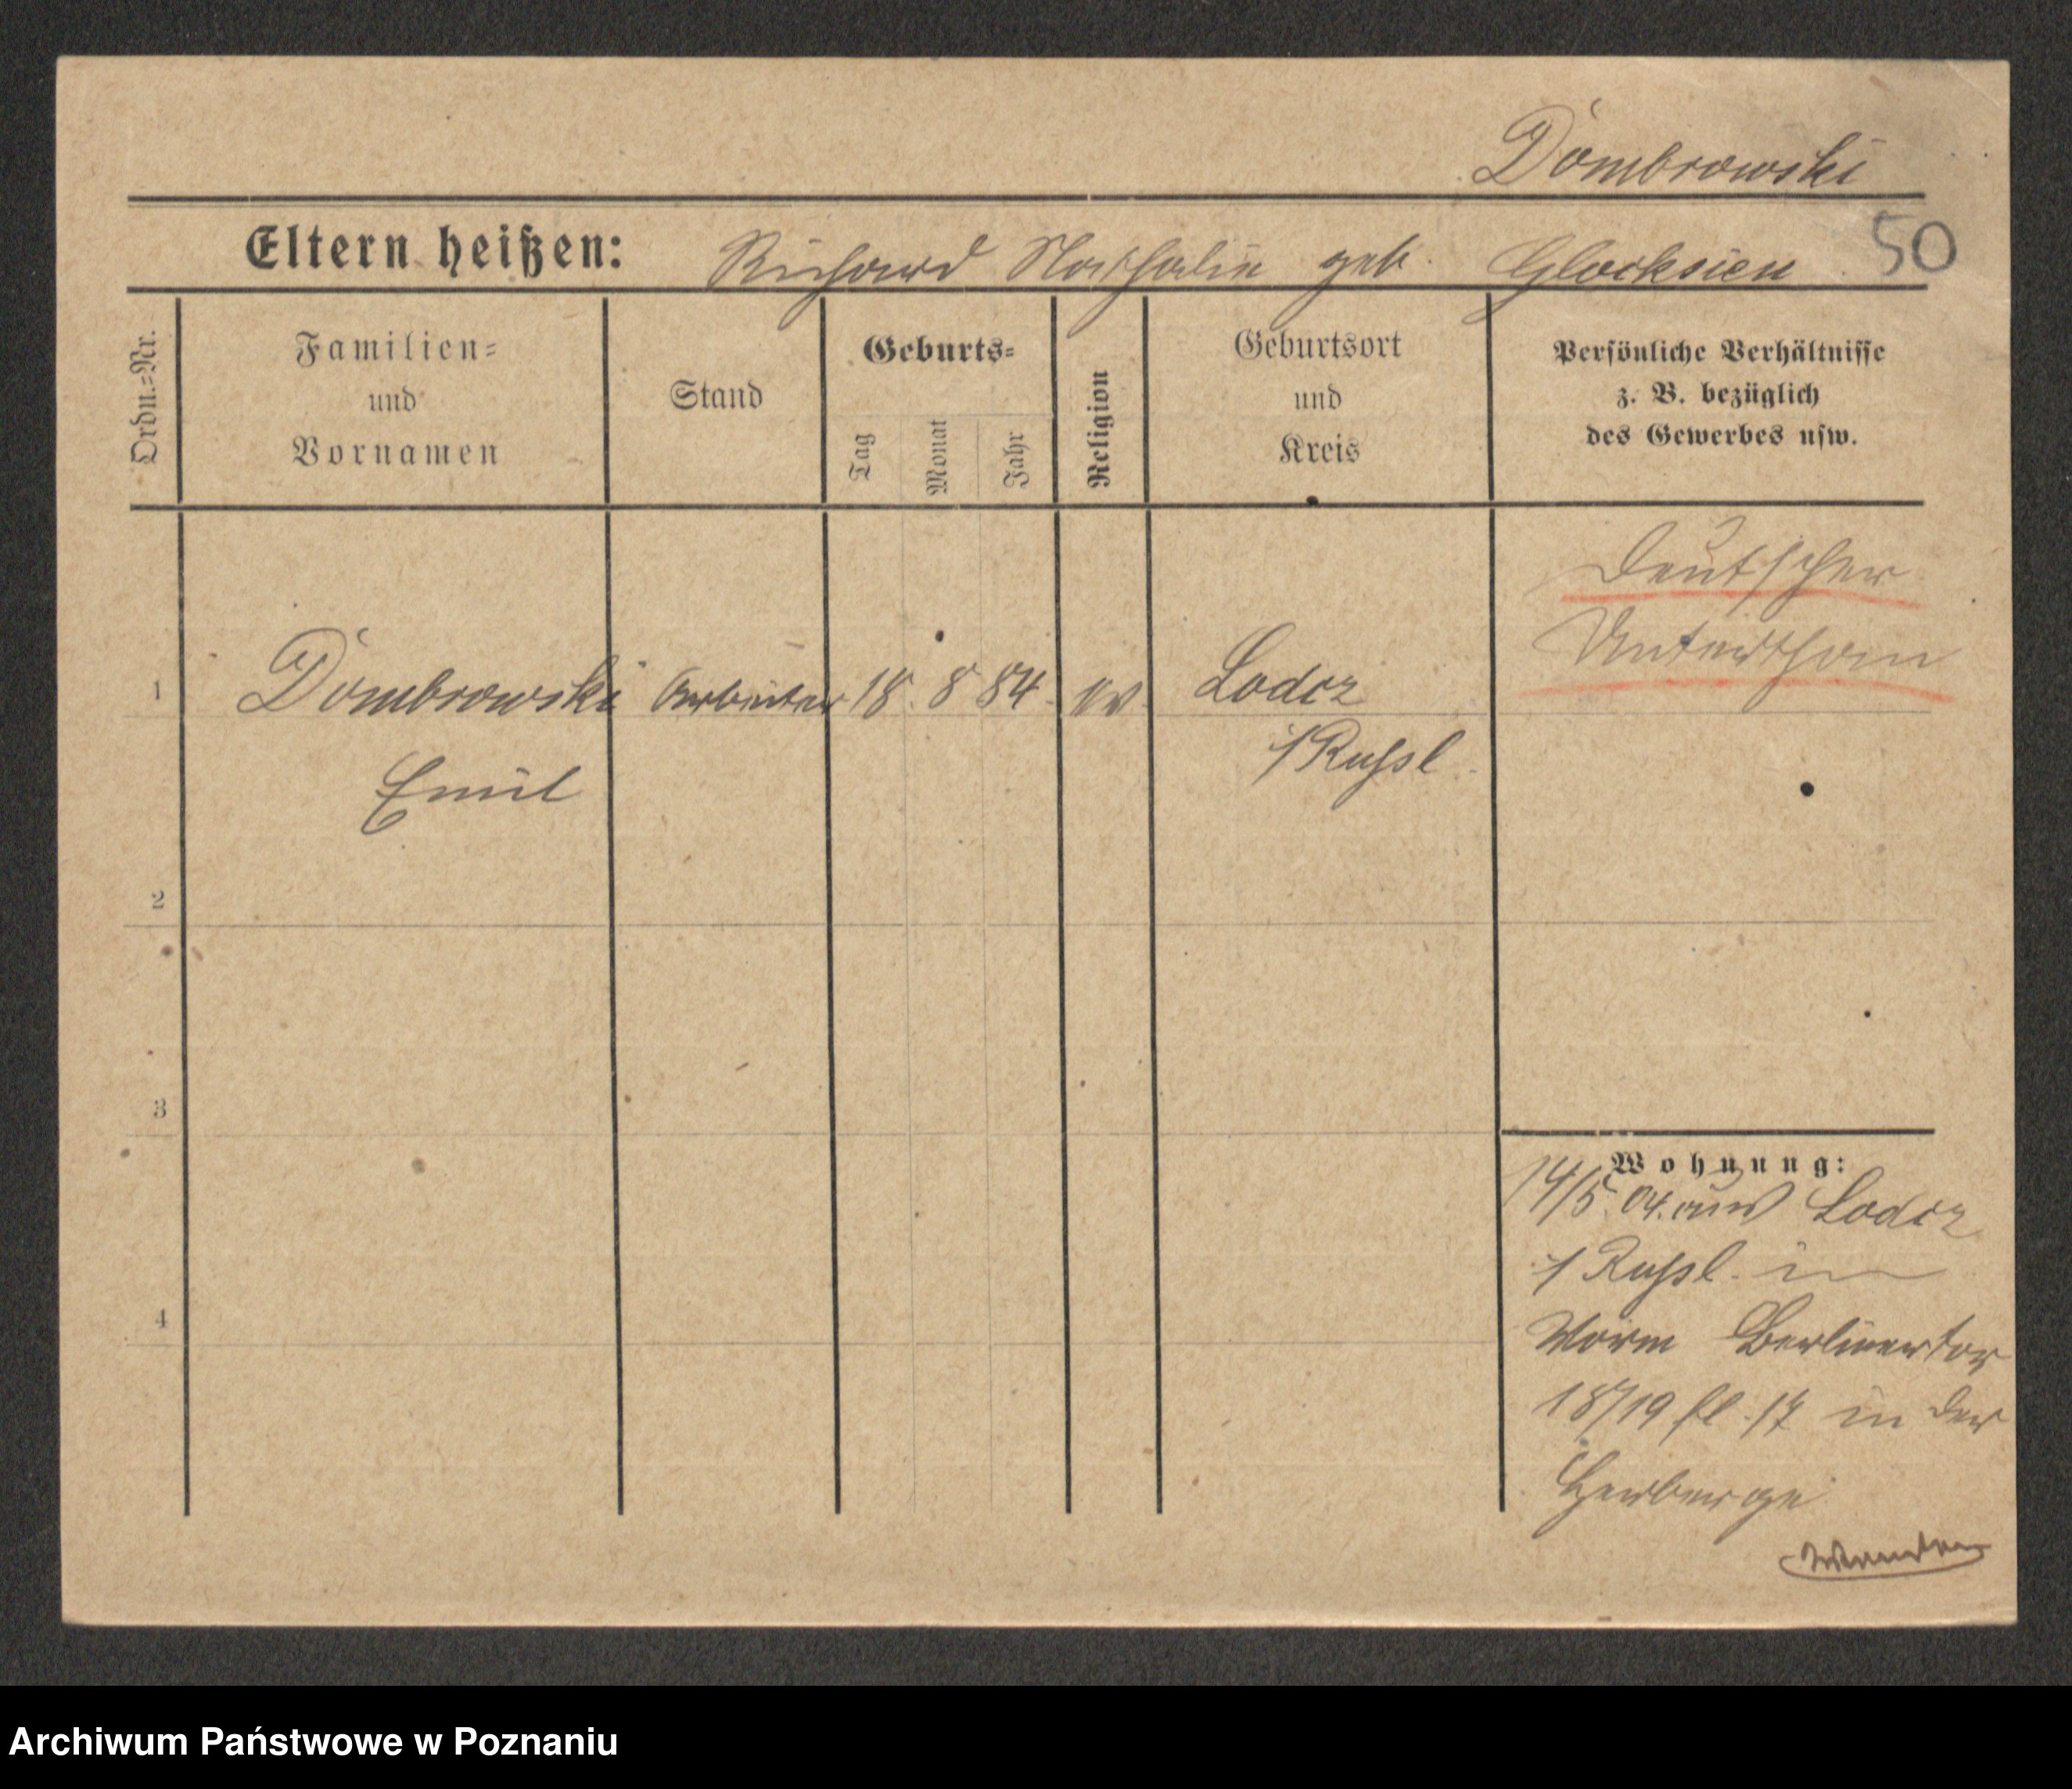 Dombrowski
Eltern heißen: Richard Nathalie geb. Glocksien 50
Ordn.=Nr.
Familien=
und
Vornamen
Stand
Geburts=
Tag
Monat
Jahr
Religion
Geburtsort
und
Kreis
Persönliche Verhältnisse
z. B. bezüglich
des Gewerbes usw.
Deutscher
Unterthan
1 Dombrowski Arbeiter 18. 8 84. ev Lodcz
Emil
i/Russl.
2
3
4
Wohnung:
14/5. 04. aus Lodcz
i/Russl. in
Vorm Berlinertor
18/19 fl. 17 in der
Herberge
Archiwum Państwowe w Poznaniu